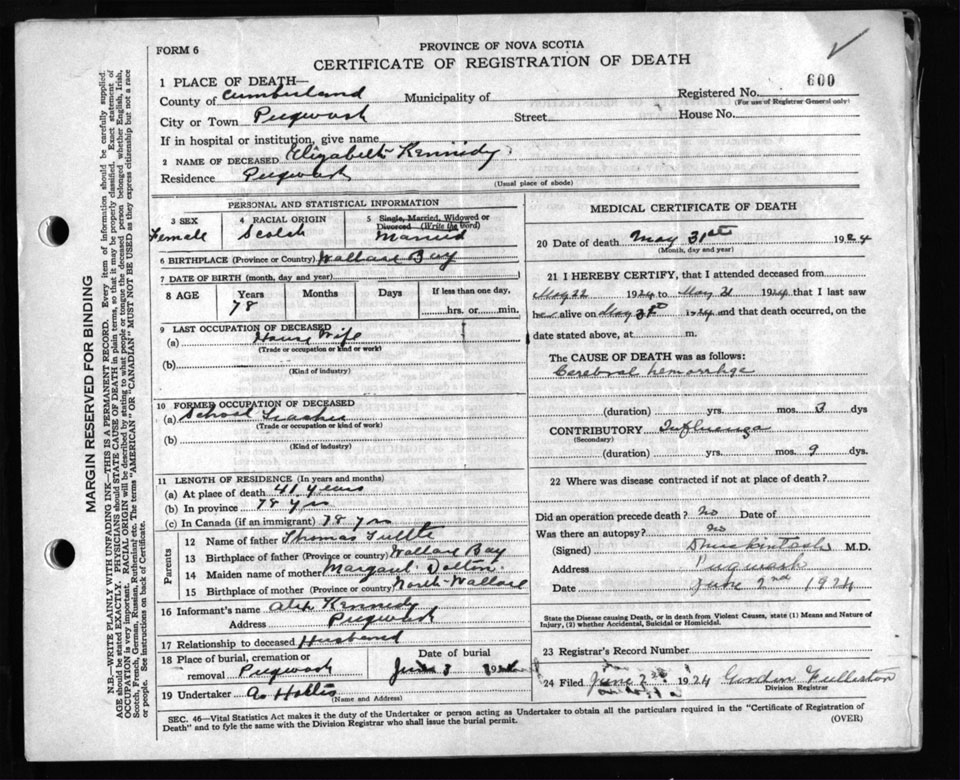 FORM 6
PROVINCE OF NOVA SCOTIA
CERTIFICATE OF REGISTRATION OF DEATH
600
1 PLACE OF DEATH—
County of Cumberland Municipality of Registered No.
(For use of Registrar General only)
City or Town Pugwash Street House No.
If in hospital or institution, give name
2 NAME OF DECEASED Elizabeth Kennedy
Residence Pugwash
(Usual place of abode)
PERSONAL AND STATISTICAL INFORMATION
3 SEX Female
4 RACIAL ORIGIN Scotch
5 Single, Married, Widowed or Divorced (Write the word) Married
6 BIRTHPLACE (Province or Country) Wallace Bay
7 DATE OF BIRTH (month, day and year)
8 AGE Years Months Days If less than one day,
78 hrs. or min.
9 LAST OCCUPATION OF DECEASED
(a) House Wife
(Trade or occupation or kind or work)
(b)
(Kind of industry)
10 FORMER OCCUPATION OF DECEASED
(a) School Teacher
(Trade or occupation or kind of work)
(b)
(Kind of industry)
11 LENGTH OF RESIDENCE (In years and months)
(a) At place of death 41 years
(b) In province 78 yrs
(c) In Canada (if an immigrant) 78 yrs
Parents
12 Name of father Thomas Tuttle
13 Birthplace of father (Province or country) Wallace Bay
14 Maiden name of mother Margaret Dotton
15 Birthplace of mother (Province or country) North Wallace
16 Informant's name Alex Kennedy
Address Pugwash
17 Relationship to deceased Husband
18 Place of burial, cremation or removal Pugwash
Date of burial
June 3 1924
19 Undertaker A Hollis
(Name and Address)
MEDICAL CERTIFICATE OF DEATH
20 Date of death May 31st 1924
(Month, day and year)
21 I HEREBY CERTIFY, that I attended deceased from
May 22 1924 to May 31 1924 that I last saw
her alive on May 31st 1924 and that death occurred, on the
date stated above, at m.
The CAUSE OF DEATH was as follows:
Cerebral hemorrhge
(duration) yrs. mos. 3 dys
CONTRIBUTORY Influenza
(Secondary)
(duration) yrs. mos. 9 dys.
22 Where was disease contracted if not at place of death?
Did an operation precede death? no Date of
Was there an autopsy? no
(Signed) M.D.
Address Pugwash
Date June 2nd 1924
State the Disease causing Death, or in death from Violent Causes, state (1) Means and Nature of
Injury, (2) whether Accidental, Suicidal or Homicidal.
23 Registrar's Record Number
24 Filed June 2nd 1924 Gordon Fullerton
Division Registrar
SEC. 46—Vital Statistics Act makes it the duty of the Undertaker or person acting as Undertaker to obtain all the particulars required in the "Certificate of Registration of
Death" and to fyle the same with the Division Registrar who shall issue the burial permit.
(OVER)
MARGIN RESERVED FOR BINDING
N.B—WRITE PLAINLY WITH UNFADING INK—THIS IS A PERMANENT RECORD. Every item of information should be carefully supplied.
AGE should be stated EXACTLY. PHYSICIANS should STATE CAUSE OF DEATH in plain terms, so that it may be properly classified. Exact statement of
OCCUPATION is very important. RACIAL ORIGIN will be described by stating to what people or tongue the deceased person belonged whether English, Irish,
Scotch, French, German, Russian, Ruthenian, etc. The terms "AMERICAN" OR "CANADIAN" MUST NOT BE USED as they express citizenship but not a race
or people. See instructions on back of Certificate.